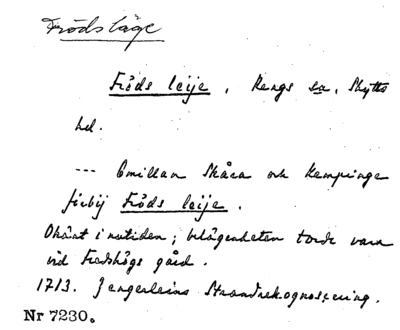 Frödsläge
Fröds leije, Rengs sn, Skytts
hd.
--- Emillan Skåra och Kempinge
förbij Fröds leije.
Okänt i nutiden; belägenheten torde vara
vid Fredshögs gård.
1713. Jengerleins Strandrekognoscering.
Nr 7230.